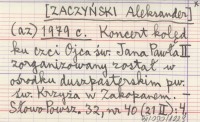 [ZACZYŃSKI Aleksander]
(az) 1979 r. Koncert kolęd
ku czci Ojca św. Jana Pawła II
zorganizowany został w
ośrodku duszpasterskim pw.
św. Krzyża w Zakopanem. -
Słowo Powsz. 32, nr 40 (21 II) : 4